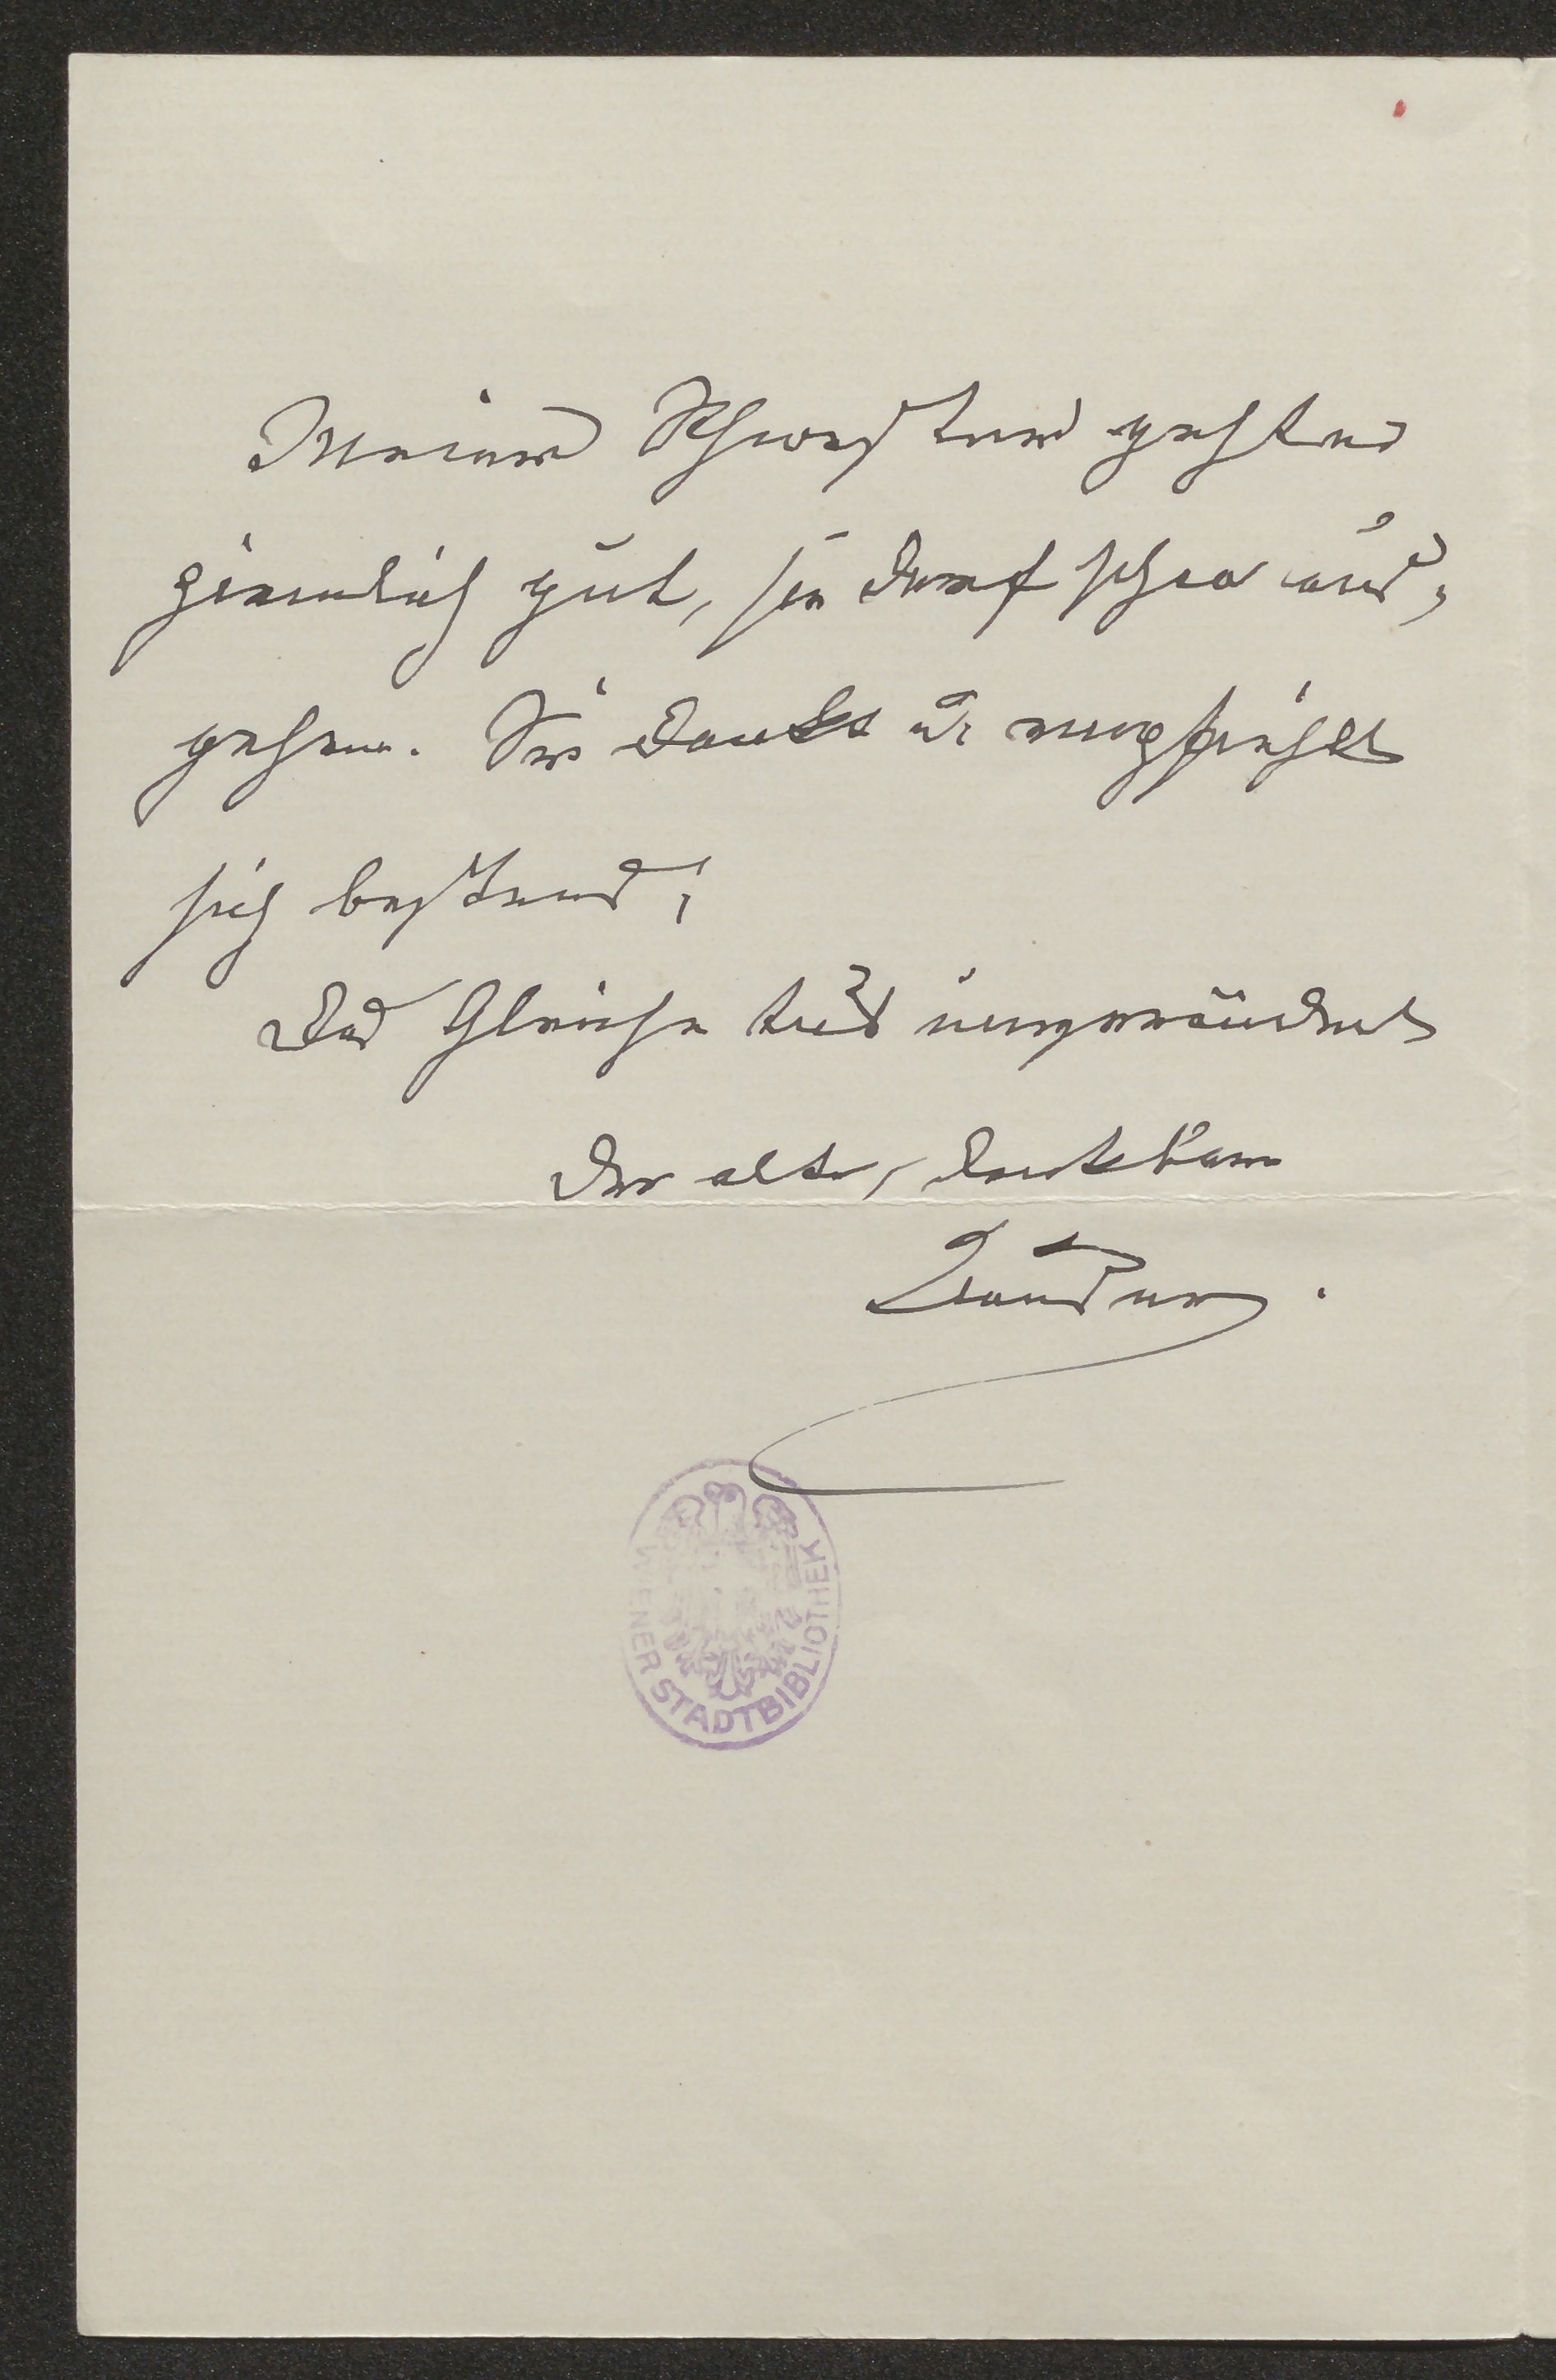 Meiner Schwester geht es
ziemlich gut, sie darf schon aus-
gehen. Sie dankt u. empfiehlt
sich bestens;
das Gleiche tut unverändert
der alte, dankbare
WIENER STADTBIBLIOTHEK